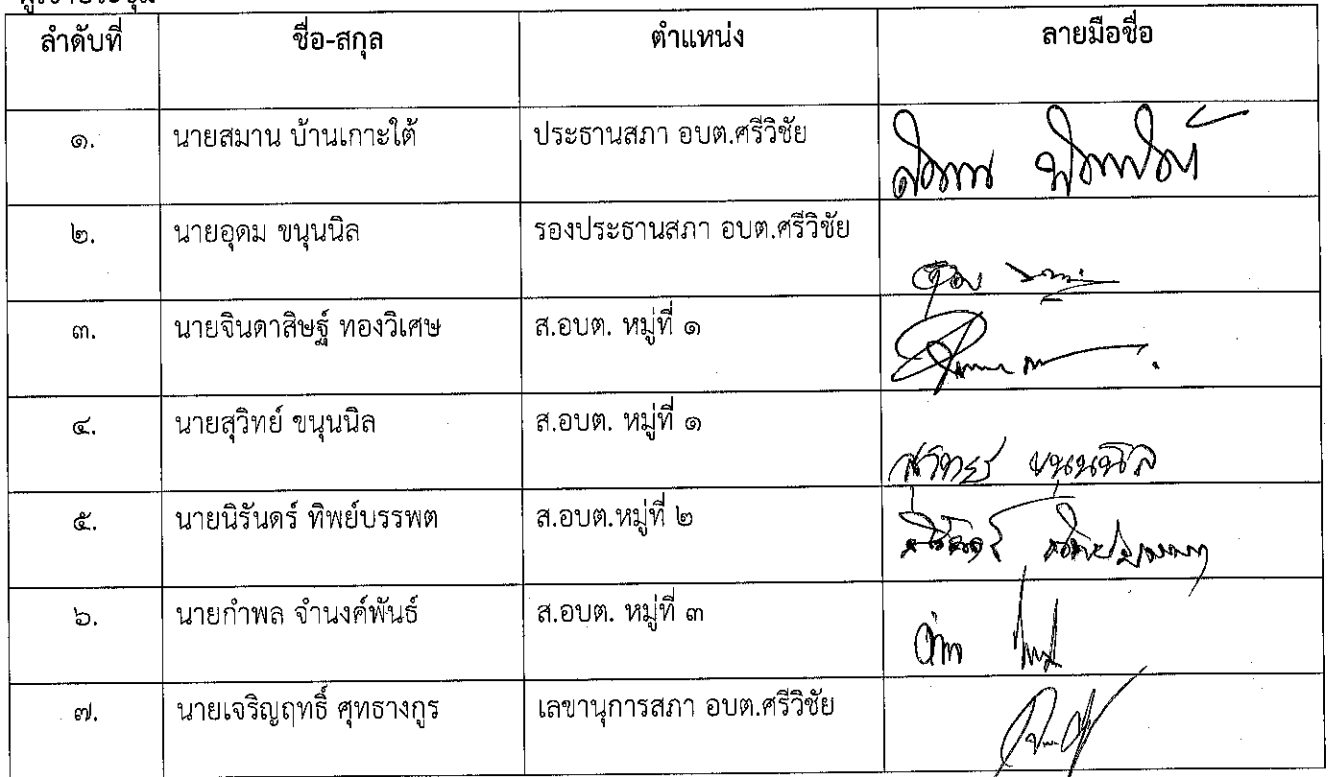 ลำดับที่ ชื่อ-สกุล ตำแหน่ง ลายมือชื่อ
๑. นายสมาน บ้านเกาะใต้ ประธานสภา อบต.ศรีวิชัย
๒. นายอุดม ขนุนนิล รองประธานสภา อบต.ศรีวิชัย
๓. นายจินดาสิษฐ์ ทองวิเศษ ส.อบต. หมู่ที่ ๑
๔. นายสุวิทย์ ขนุนนิล ส.อบต. หมู่ที่ ๑ สุวิทย์ ขนุนนิล
๕. นายนิรันดร์ ทิพย์บรรพต ส.อบต.หมู่ที่ ๒
๖. นายกำพล จำนงค์พันธ์ ส.อบต. หมู่ที่ ๓
๗. นายเจริญฤทธิ์ ศุทธางกูร เลขานุการสภา อบต.ศรีวิชัย